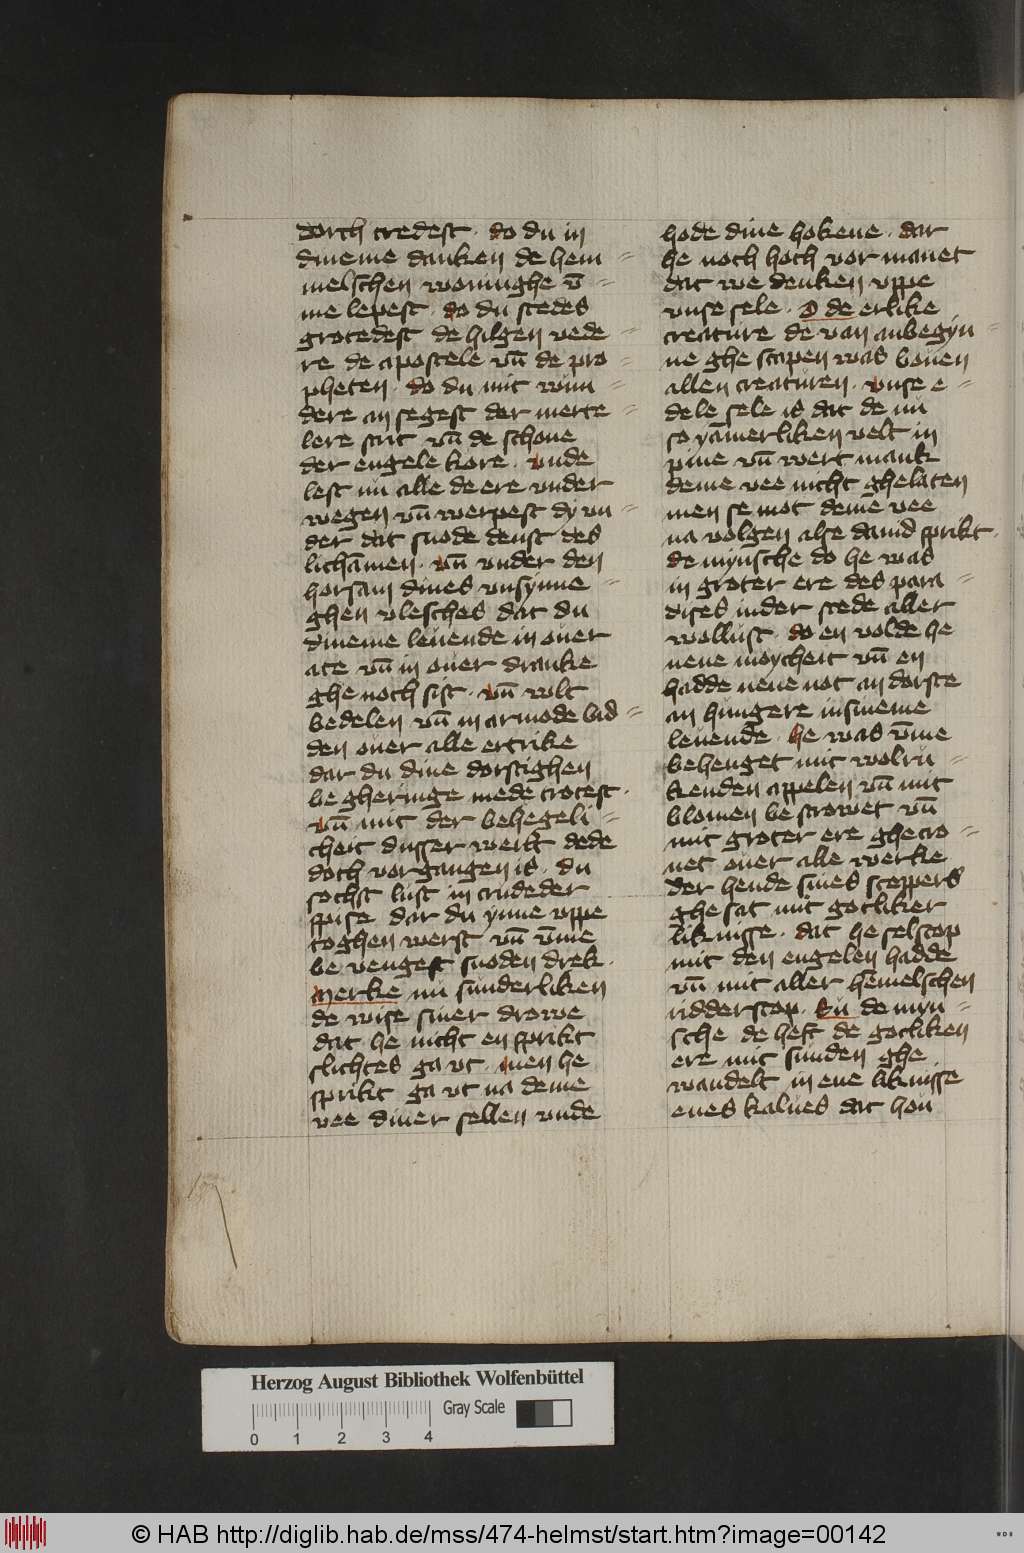 dorch tredest · do du in
dineme danken de hem=
melschen woninghe v̄=
me lepest · do du stedes
grotedest de hilgen vede=
re de apostele vn̄ de pro=
pheten · do du mit wun=
dere an segest der merte=
lere scrit vn̄ de schone
der engele kore · vnde
lest nu alle de ere vnder
wegen vn̄ werpest dy vn=
der dat snode denst des
lichāmen · vn̄ vnder den
horsam dines vnsynne=
ghen vlesches dat du
dineme leuende in ouer
ate vn̄ in ouer dranke
ghe noch sist · vn̄ wlt
bedelen vn̄ in armode lid=
den ouer alle ertrike
dar du dine dorstighen
be gheringe mede trotest ·
vn̄ mit der behegeli=
cheit dusser werlt dede
doch vorgangen is · du
sochst lust in crudeder
spise dar du ynne vppe
toghen werst vn̄ v̄me
be vengest snoden drek ·
Merke nu sunderliken
de wise siner drowe
dat he nicht en sprikt
slichtes ga vt · men he
sprikt ga vt na deme
vee diner sellen vnde
hode dine hokene · dar
he noch hoch vor manet
dat we denken vppe
vnse sele · O de erlike
creature de van anbegyn=
ne ghe scapen was bouen
allen creaturen · vnse e=
dele sele is dat de nu
so yāmerliken velt in
pine vn̄ wert mank
deme vee nicht ghelaten
men se mot deme vee
na volgen alse dauid sprikt ·
de mynsche do he was
in groter ere des para=
dises inder stede aller
wollust · do en volde he
nene moycheit vn̄ en
hadde nene not an dorste
an hungere insineme
leuende · he was v̄me
behenget mit wolru=
kenden appelen vn̄ mit
blomen be strowet vn̄
mit groter ere ghecro=
net ouer alle werke
der hende sines sceppers
ghe sat mit gotliker
liknisse · dat he selscop
mit den engelen hadde
vn̄ mit aller hemelschen
ridderscop · Nu de myn=
sche de heft de gotliken
ere mit sunden ghe
wandelt in ene liknisse
enes kalues dat hou
Herzog August Bibliothek Wolfenbüttel
Gray Scale
0 1 2 3 4
© HAB http://diglib.hab.de/mss/474-helmst/start.htm?image=00142